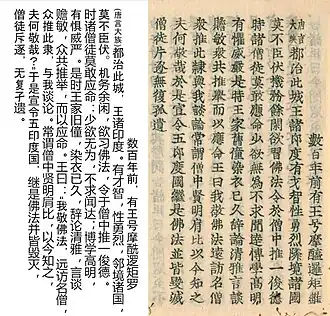 數百年前有王號摩醯邏矩羅
唐言大族都治此城王諸印度有才智性勇烈隣境諸國
莫不臣伏機務餘閑欲習佛法令於僧中推一俊德
時諸僧徒莫敢應命少欲無為不求聞達博學高明
有懼威嚴是時王家舊僮染衣已久辭論清雅言談
贍敏衆共推舉而以應命王曰我敬佛法遠訪名僧
衆推此隸與我談論常謂僧中賢明肩比以今知之
夫何敬哉於是宣令五印度國繼是佛法並皆毀滅
僧徒斥逐無復孑遺
数百年前，有王号摩醯逻矩罗
(唐言大族)都治此城，王诸印度。有才智，性勇烈，邻境诸国，
莫不臣伏。机务余闲，欲习佛法，令于僧中推一俊德。
时诸僧徒莫敢应命：少欲无为，不求闻达；博学高明，
有惧威严。是时王家旧僮，染衣已久，辞论清雅，言谈
赡敏，众共推举，而以应命。王曰："我敬佛法，远访名僧，
众推此隶，与我谈论。常谓僧中贤明肩比，以今知之，
夫何敬哉？"于是宣令五印度国，继是佛法并皆毁灭，
僧徒斥逐，无复孑遗。